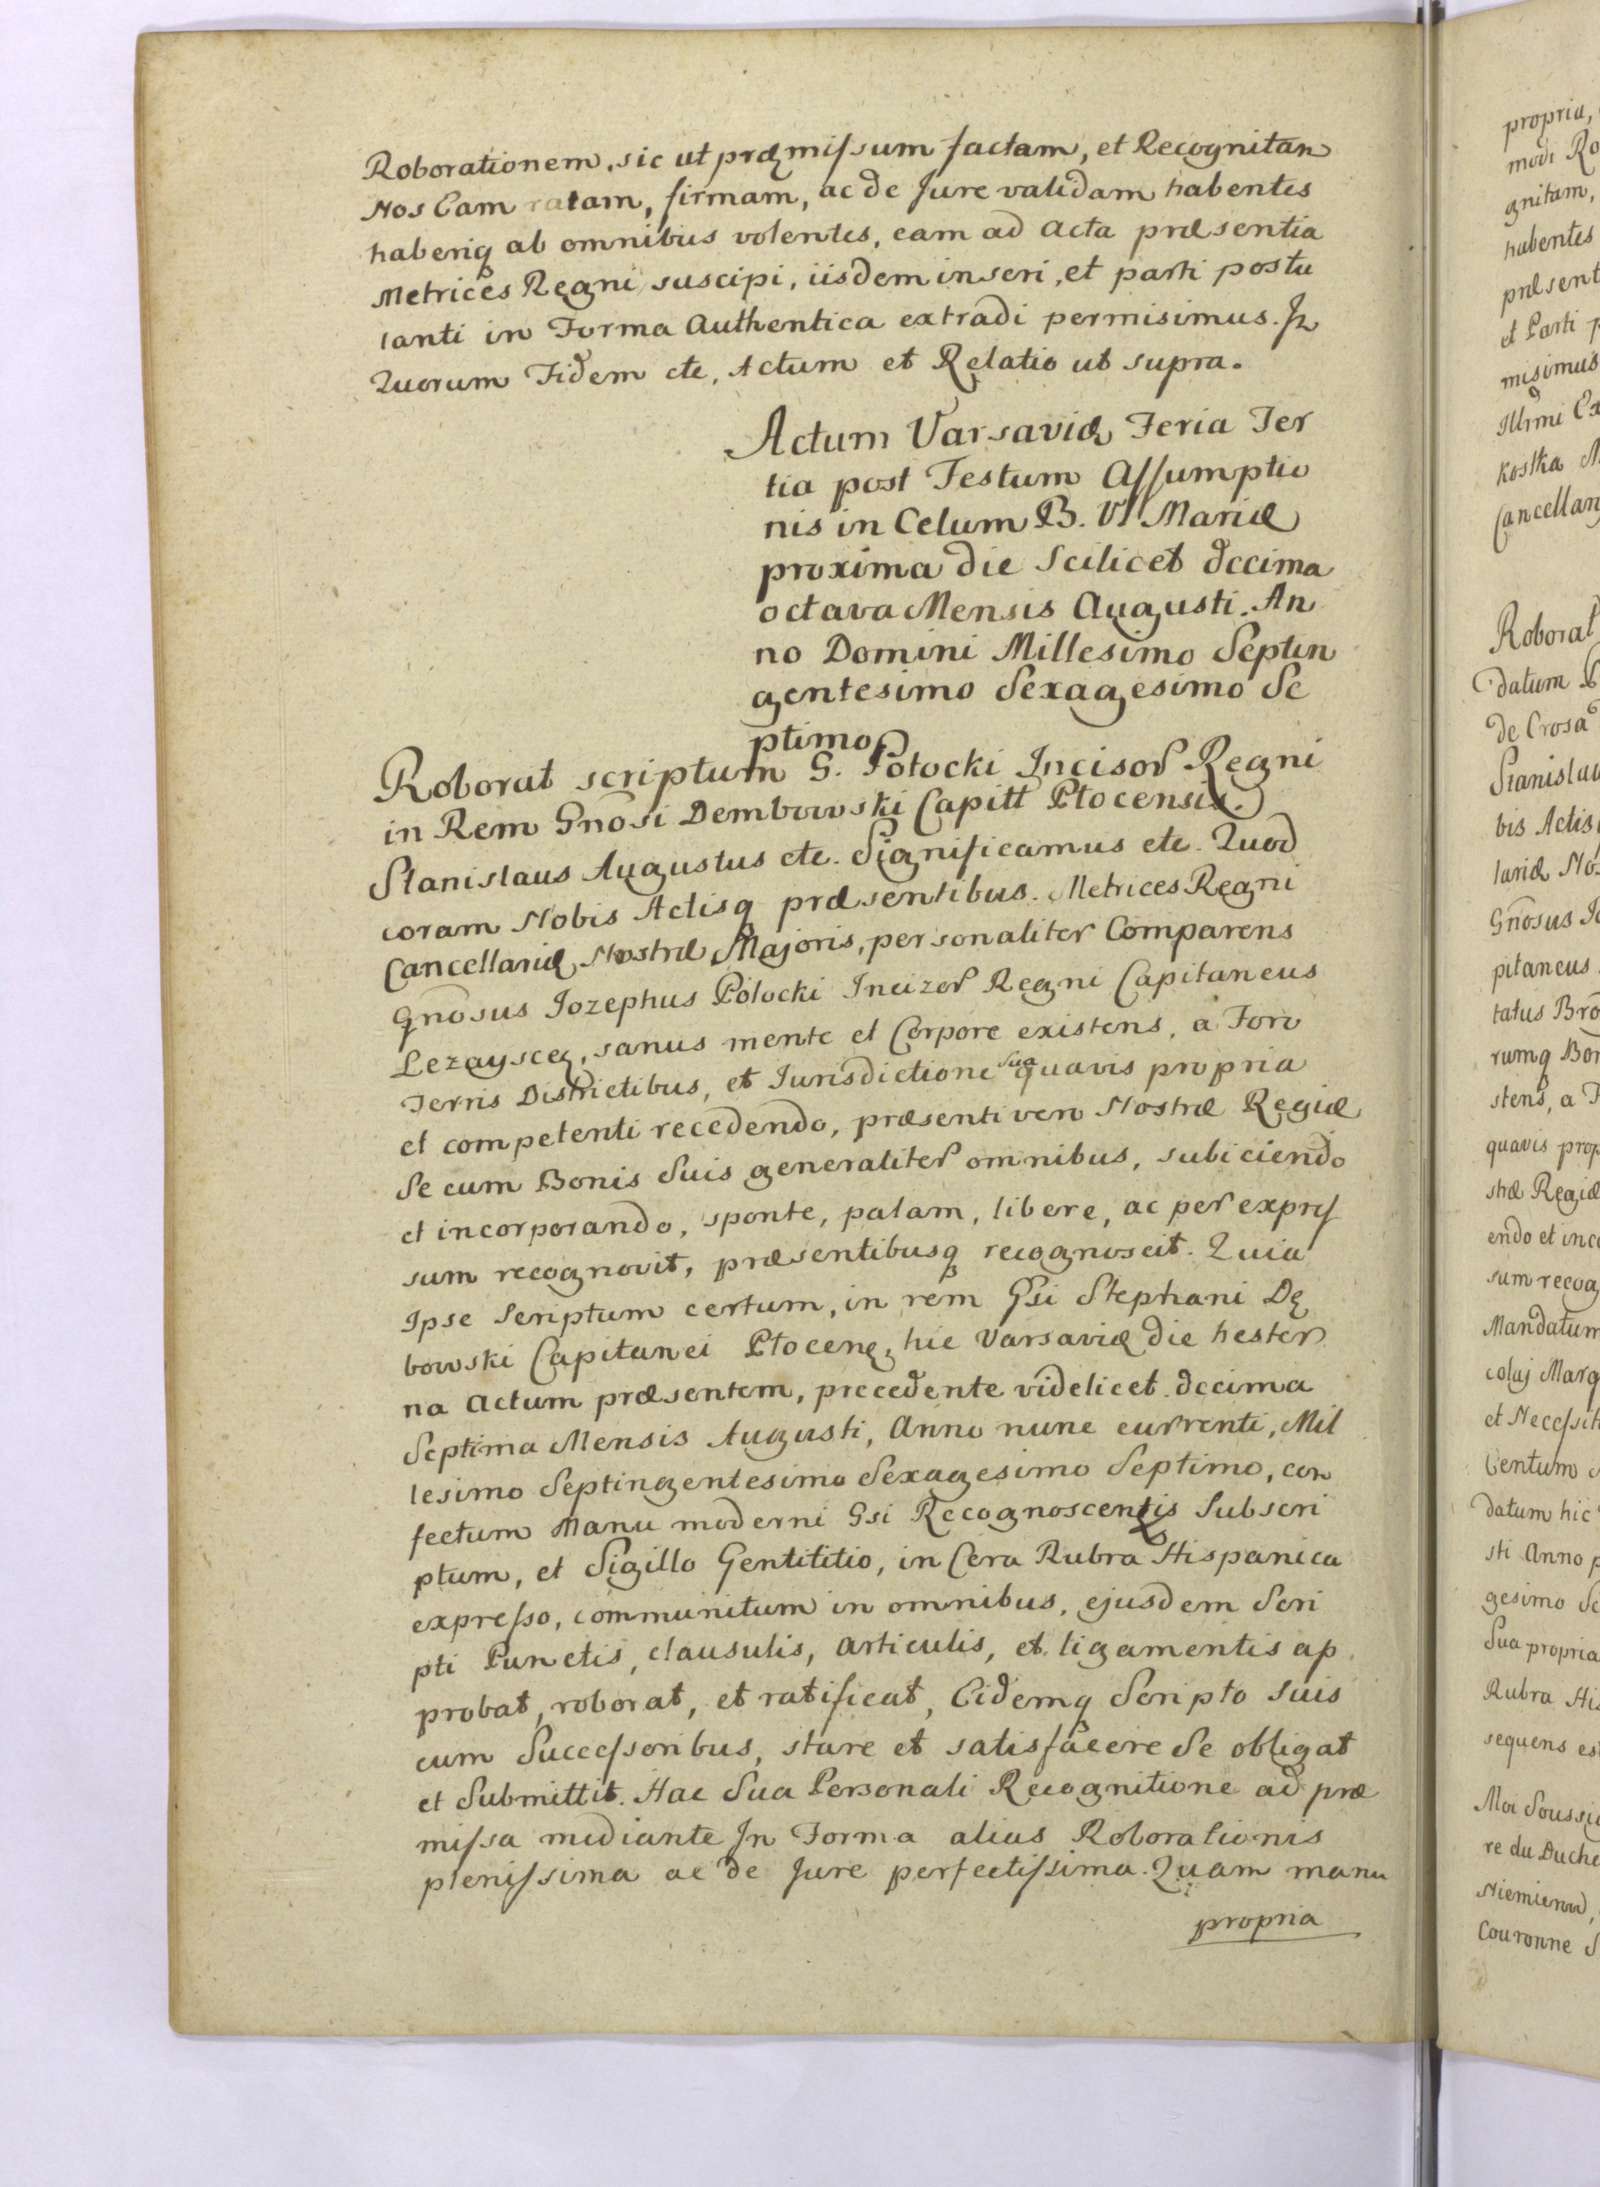 Roborationem, sic ut præmiſsum factam, et Recognitam
Nos Eam ratam, firmam, ac de Jure validam habentes
haberiq ab omnibus volentes, eam ad Acta præsentia
Metrices Regni suscipi, iisdem inseri, et parti postu
lanti in Forma Authentica extradi permisimus. In
Quorum Fidem etc, Actum et Relatio ut supra.
Actum Varsaviæ Feria Ter
tia post Festum Aſsumptio
nis in Celum B. V. Mariæ
proxima die Scilicet decima
octava Mensis Augusti. An
no Domini Millesimo Septin
gentesimo Sexagesimo Se
ptimo
Roborat scriptum G. Potocki Incisor Regni
in Rem Gnosi Dembowski Capitt Plocensis.
Stanislaus Augustus etc. Significamus etc. Quod
coram Nobis Actisq præsentibus. Metrices Regni
Cancellariæ Nostræ Majoris, personaliter Comparens
Gnosus Jozephus Potocki Incizor Regni Capitaneus
Lezayscen, sanus mente et Corpore existens, a Foro
Terris Districtibus, et Jurisdictione sua quavis propria
et competenti recedendo, præsenti vero Nostræ Regiæ
Se cum Bonis Suis generaliter omnibus, subiciendo
et incorporando, sponte, palam, libere, ac per expreſ
sum recognovit, præsentibusq recognoscit. Quia
Ipse Scriptum certum, in rem Gsi Stephani Dę
bowski Capitanei Plocen, hic Varsaviæ die hester
na Actum præsentem, precedente videlicet decima
Septima Mensis Augusti, Anno nunc currenti, Mil
lesimo Septingentesimo Sexagesimo Septimo, con
fectum Manu moderni Gsi Recognoscentis Subscri
ptum, et Sigillo Gentilitio, in Cera Rubra Hispanica
expreſso, communitum in omnibus, ejusdem Scri
pti Punctis, clausulis, articulis, et ligamentis ap
probat, roborat, et ratificat, Eidemq Scripto Suis
cum Succeſsoribus, stare et satisfacere Se obligat
et Submittit. Hac Sua Personali Recognitione ad præ
miſsa mediante In Forma alias Roborationis
pleniſsima ac de Jure perfectiſsima. Quam manu
propria
propria,
modi Ro
gnitam,
habentes
præsent
et Parti p
misimus
Illrmi Ex
kostka M
Cancellar
Roborat
datum P
de Crosa
Stanislau
bis Actis
lariæ Nos
Gnosus Jo
pitaneus
tatus Bro
rumq Bon
stens, a F
quavis prop
stræ Regiæ
endo et inco
sum recog
Mandatum
colaj Marq
et Neceſsit
Centum
datum hic
sti Anno p
gesimo Se
Sua propria
Rubra His
sequens est
Moi Soussig
re du Duche
Niemierow,
Couronne S